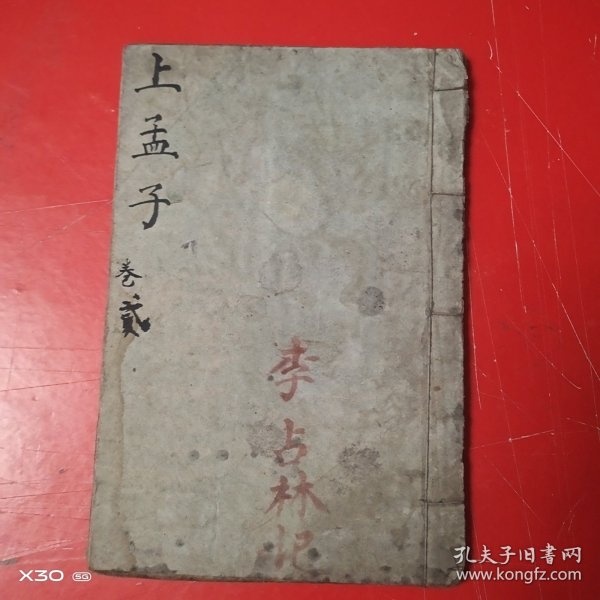 上孟子
卷貳
李占林记
孔夫子旧书网
www.kongfz.com
X30 5G